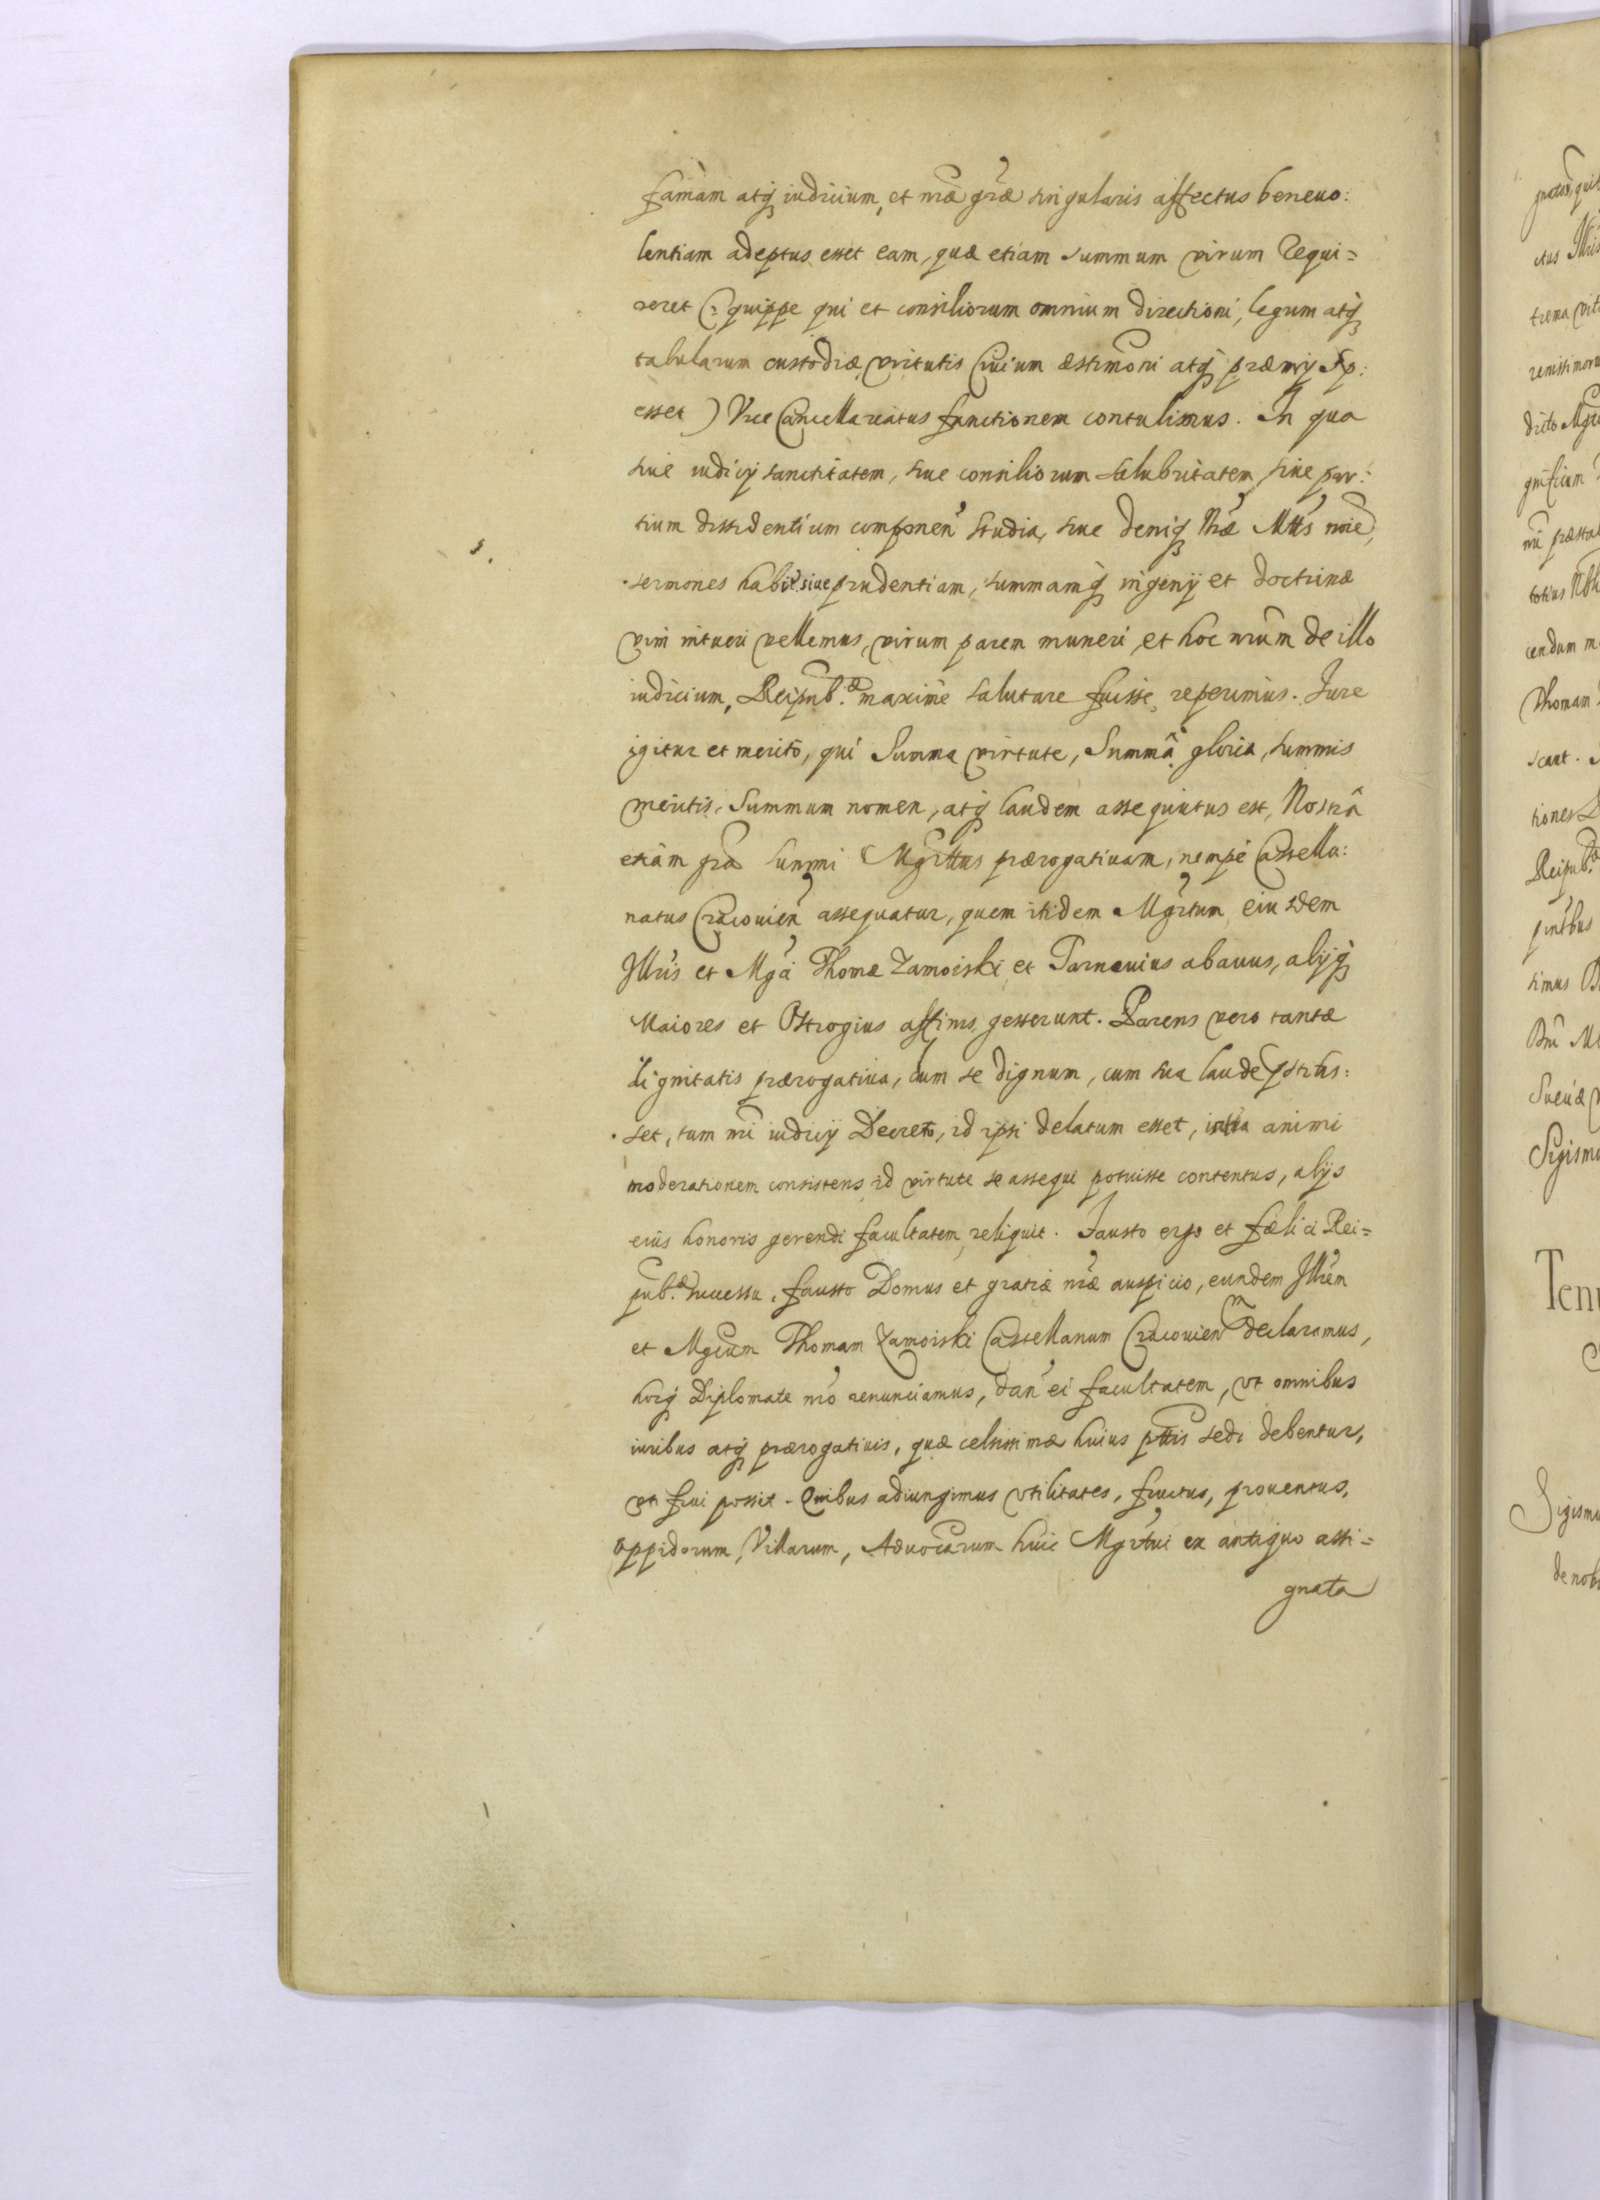 famam atq iudicium, et nrae grae singularis affectus beneuo:
lentiam adeptus esset eam, quae etiam summum virum requi=
reret (: quippe qui et consiliorum omnium directioni, legum atq
tabularum custodiae, virtutis Ciuium aestimoni atq praemij
esset ) Vice Cancellariatus functionem contulimus. In qua
siue iudicij sanctitatem, siue consiliorum salubritatem, siue par:
tium dissidentium componen studia, siue deniq Nrae Mttis noie,
sermones habit. siue prudentiam, summamq ingenij et doctrinae
vim intueri vellemus, virum parem muneri, et hoc nrum de illo
iudicium, Reipub.ae maxime salutare fuisse, reperimus. Jure
igitur et merito, qui Summa virtute, Summâ gloria, summis
meritis, Summum nomen, atq laudem assequutus est, Nostrâ
etiam gra summi Mgrttus praerogatiuam, nempe Castella:
natus Cracouien assequatur, quem itidem Mgrtum eiusdem
Jllris et Mgci Thomae Zamoiski et Tarnouius abauus, alijq
Maiores et Ostrogius affinis gesserunt. Parens vero tantae
dignitatis praerogatiua, cum se dignum, cum sua laude
set, tum nri iudicij Decreto, id ipsi delatum esset, intra animi
moderationem consistens id virtute se assequi potuisse contentus, alijs
eius honoris gerendi facultatem reliquit. Fausto ergo et faelici Rei=
pub.ae successu, fausto Domus et gratiae nrae auspicio, eundem Jllrem
et Mgcum Thomam Zamoiski Castellanum Cracouienm declaramus,
hocq Diplomate nro renunciamus, dan ei facultatem, vt omnibus
iuribus atq praerogatiuis, quae celsissimae huius pttis sedi debentur,
vti frui possit. Quibus adiungimus vtilitates, fructus, prouentus,
oppidorum, Villarum, Aduocarum huic Mgrtui ex antiquo assi=
gnata